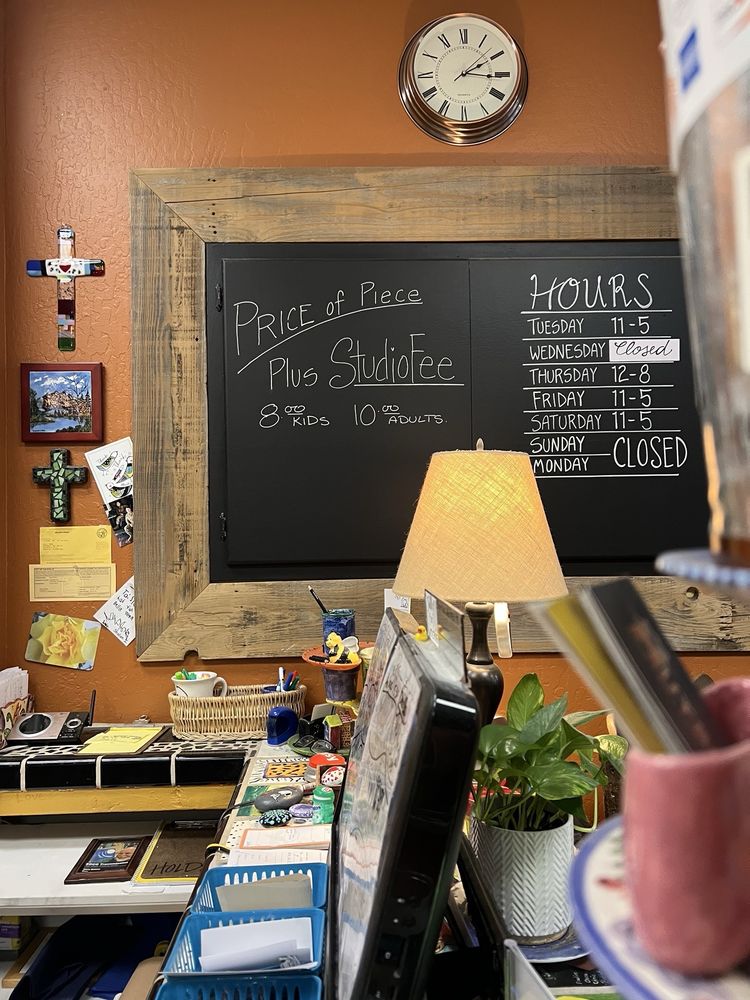 PRICE of Piece
Plus StudioFee
8.00 KIDS 10.00 ADULTS.
HOURS
TUESDAY 11-5
WEDNESDAY Closed
THURSDAY 12-8
FRIDAY 11-5
SATURDAY 11-5
SUNDAY CLOSED
MONDAY
HOLD